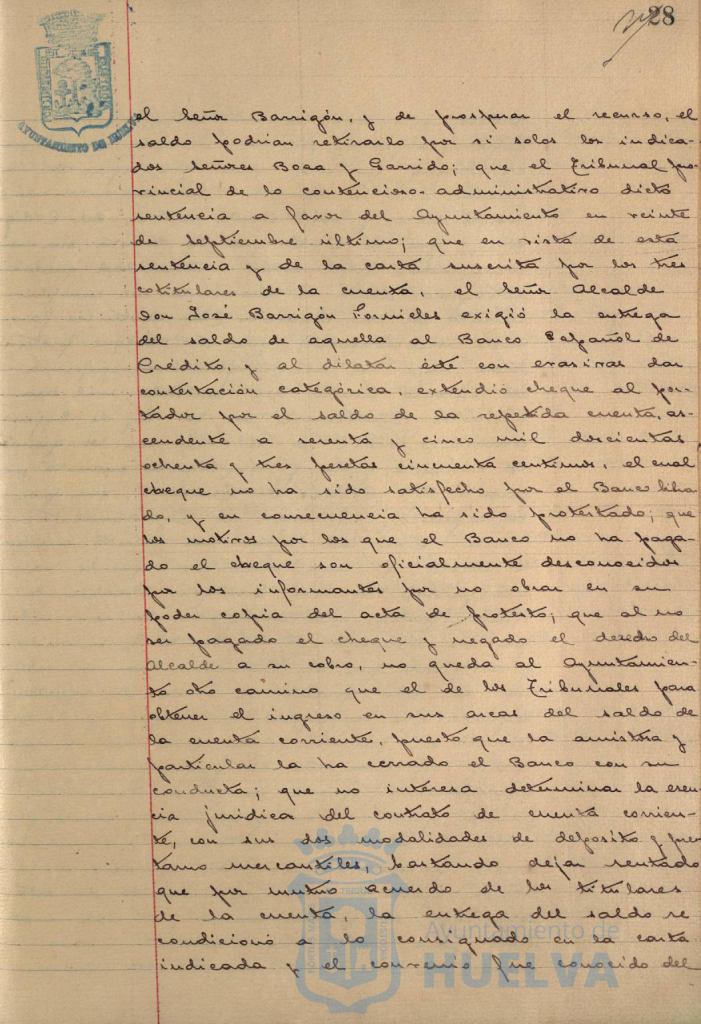 28
AYUNTAMIENTO DE HUELVA
el Señor Barrigón, y de prosperar el recurso, el
saldo podrian retirarlo por si solos los indica-
dos señores Boza y Garrido; que el Tribunal pro-
vincial de lo contencioso-administrativo dictó
sentencia a favor del Ayuntamiento en veinte
de septiembre último; que en vista de esta
sentencia y de la carta suscrita por los tres
cotitulares de la cuenta, el Señor Alcalde
Don José Barrigón Fornieles exigió la entrega
del saldo de aquella al Banco Español de
Crédito, y al dilatar éste con evasivas dar
contestación categórica, extendió cheque al por-
tador por el saldo de la repetida cuenta, as-
cendente a setenta y cinco mil doscientas
ochenta y tres pesetas cincuenta centimos, el cual
cheque no ha sido satisfecho por el Banco libra-
do, y en consecuencia ha sido protestado; que
los motivos por los que el Banco no ha paga-
do el cheque son oficialmente desconocidos
por los informantes por no obrar en su
poder copia del acta de protesto; que al no
ser pagado el cheque y negado el derecho del
Alcalde a su cobro, no queda al Ayuntamien-
to otro camino que el de los Tribunales para
obtener el ingreso en sus arcas del saldo de
la cuenta corriente, puesto que la amistosa y
particular la ha cerrado el Banco con su
conducta; que no interesa determinar la esen-
cia juridica del contrato de cuenta corrien-
te, con sus dos modalidades de deposito y pres-
tamo mercantiles, bastando dejar sentado
que por mutuo acuerdo de los titulares
de la cuenta, la entrega del saldo se
condicionó a lo consignado en la carta
indicada y el convenio fue conocido del
Ayuntamiento de
HUELVA